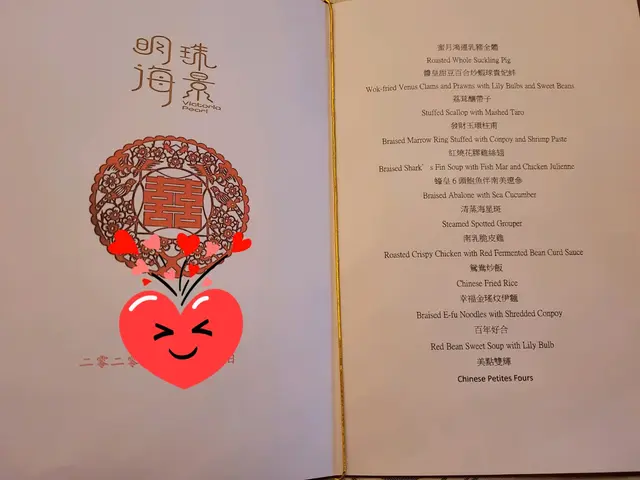 明珠
海景
Victoria
Pearl
囍
二零二零
日
蜜月鴻運乳豬全體
Roasted Whole Suckling Pig
醬皇甜豆百合炒蝦球貴妃蚌
Wok-fried Venus Clams and Prawns with Lily Bulbs and Sweet Beans
荔茸釀帶子
Stuffed Scallop with Mashed Taro
發財玉環柱甫
Braised Marrow Ring Stuffed with Conpoy and Shrimp Paste
紅燒花膠雞絲翅
Braised Shark's Fin Soup with Fish Mar and Chicken Julienne
蠔皇6頭鮑魚伴南美遼參
Braised Abalone with Sea Cucumber
清蒸海星斑
Steamed Spotted Grouper
南乳脆皮雞
Roasted Crispy Chicken with Red Fermented Bean Curd Sauce
鴛鴦炒飯
Chinese Fried Rice
幸福金瑤炆伊麵
Braised E-fu Noodles with Shredded Conpoy
百年好合
Red Bean Sweet Soup with Lily Bulb
美點雙輝
Chinese Petites Fours